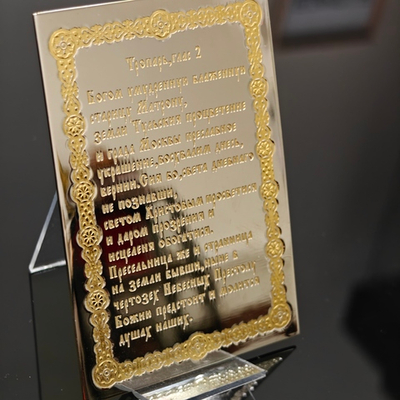 Тропарь, глас 2
Богом умудренную блаженную
старицу Матрону,
земли Тульския процветение
и града Москвы преславное
украшение, восхвалим днесь,
вернии. Сия бо, света дневнаго
не познавши,
светом Христовым просветися
и даром прозрения и
исцеления обогатися.
Пресельница же и странница
на земли бывши, ныне в
чертозех Небесных Престолу
Божии предстоит и молится
душах наших.